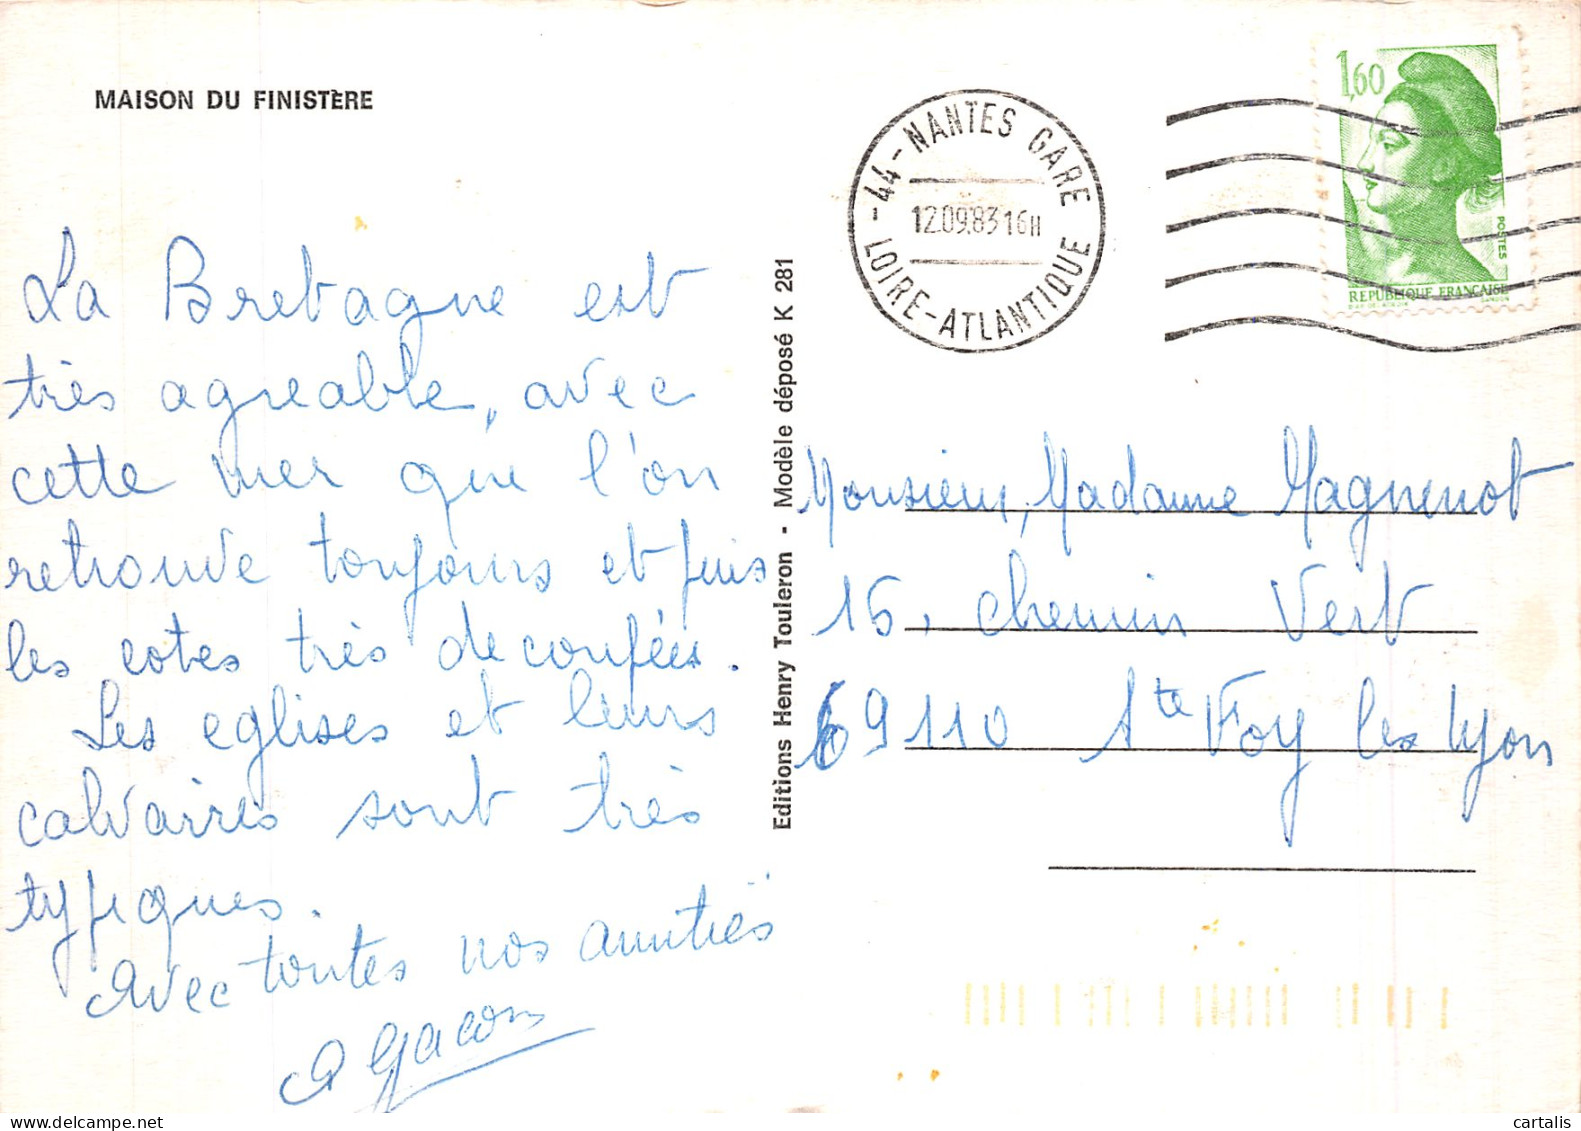 MAISON DU FINISTÈRE
La Bretagne est
très agreable, avec
cette mer que l'on
retrouve toujours et puis
les cotes très decoupées.
Les eglises et leurs
calvaires sont très
typiques.
Avec toutes nos amitiés
A Gacon
Editions Henry Touleron - Modèle déposé K 281
44 - NANTES GARE
12.09.83 16H
LOIRE-ATLANTIQUE
1,60
POSTES
REPUBLIQUE FRANÇAISE
GANDON
Monsieur, Madame Magnenot
16, chemin Vert
69110 Ste Foy les Lyon
cartalis
delcampe.net